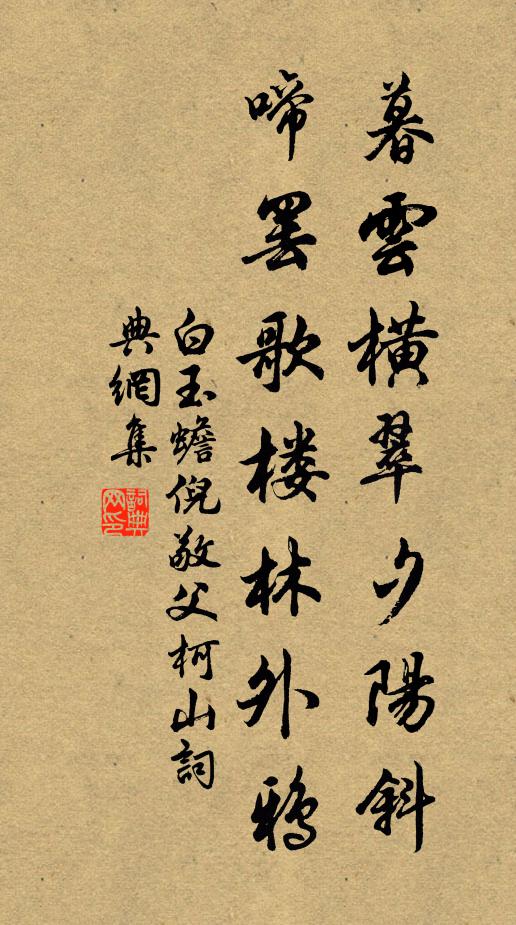 暮雲橫翠夕陽斜
啼罢歌楼林外鴉
白玉蟾倪敬父柯山詞
典網集
詞典网印